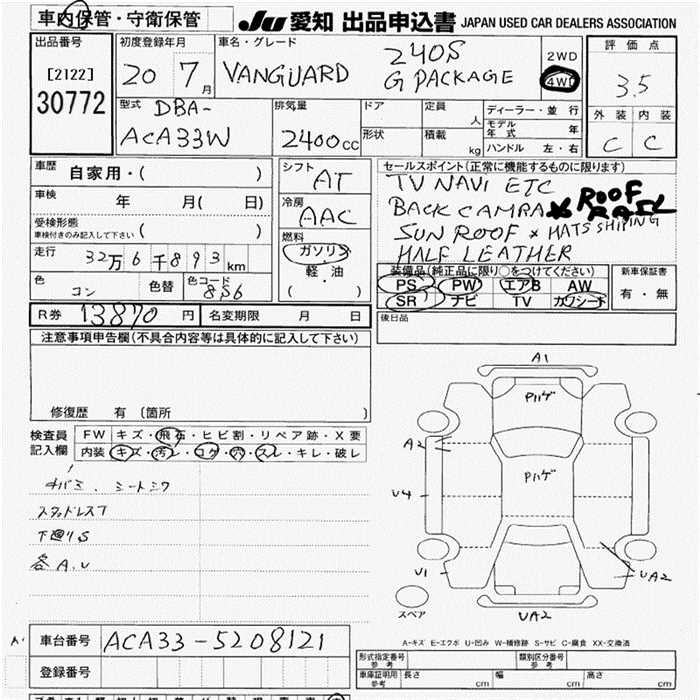 車内保管・守衛保管 JU 愛知 出品申込書 JAPAN USED CAR DEALERS ASSOCIATION
出品番号 初度登録年月 車名・グレード 評価点
[2122] 20 7月 VANGUARD 240S 2WD
30772 G PACKAGE 4WD 3.5
型式 DBA- 排気量 ドア 定員 人 ディーラー・並行 外装 内装
ACA33W 2400cc 形状 積載 kg モデル年式 年 C C
ハンドル 左・右
車歴 自家用・( ) シフト AT セールスポイント(正常に機能するものに限ります)
車検 年 月( 日) 冷房 AAC TV NAVI ETC
受検形態 BACK CAMRA ROOF RAIL
車検付きのみ記入して下さい ( ) 燃料 SUN ROOF × HATS SHIPING
走行 32万6千893km ガソリン HALF LEATHER
軽・油
( )
色 コン 色替 色コード 8S6 装備品(純正品に限り○をつけてください) 新車保証書
PS PW エアB AW 有・無
SR ナビ TV カワシート
R券 13870 円 名変期限 月 日 後日品
注意事項申告欄(不具合内容等は具体的に記入して下さい)
修復歴 有 (箇所 )
検査員記入欄 FW キズ・飛石・ヒビ割・リペア跡・X要
内装 キズ・汚レ・コゲ・穴・スレ・キレ・破レ
シートシワ
スタッドレス7
下廻りS
各A.U
A1
Pハゲ
A2
Pハゲ
U4
U1 UA2
スペア UA2
A-キズ E-エクボ U-凹み W-補修跡 S-サビ C-腐食 XX-交換済
車台番号 ACA33-5208121
登録番号
形式指定番号 参考 類別区分番号 参考
車庫証明用 参考 長さ cm 幅 cm 高さ cm